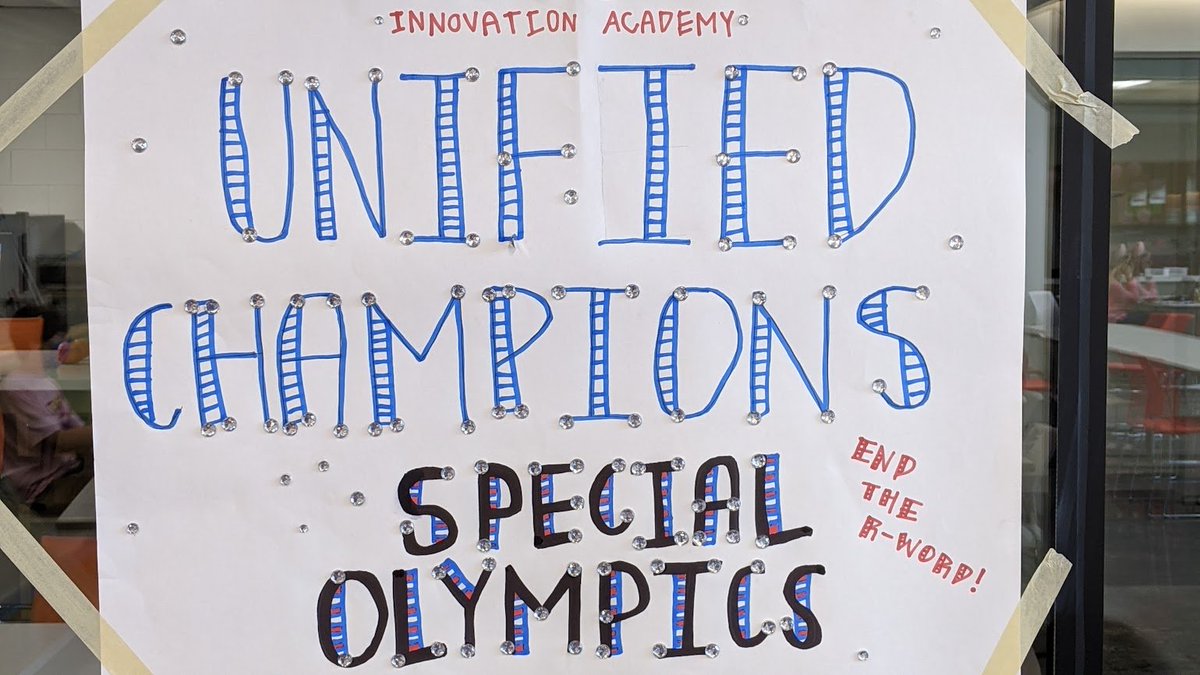 INNOVATION ACADEMY
UNIFIED
CHAMPIONS
SPECIAL
OLYMPICS
END
THE
R-WORD!